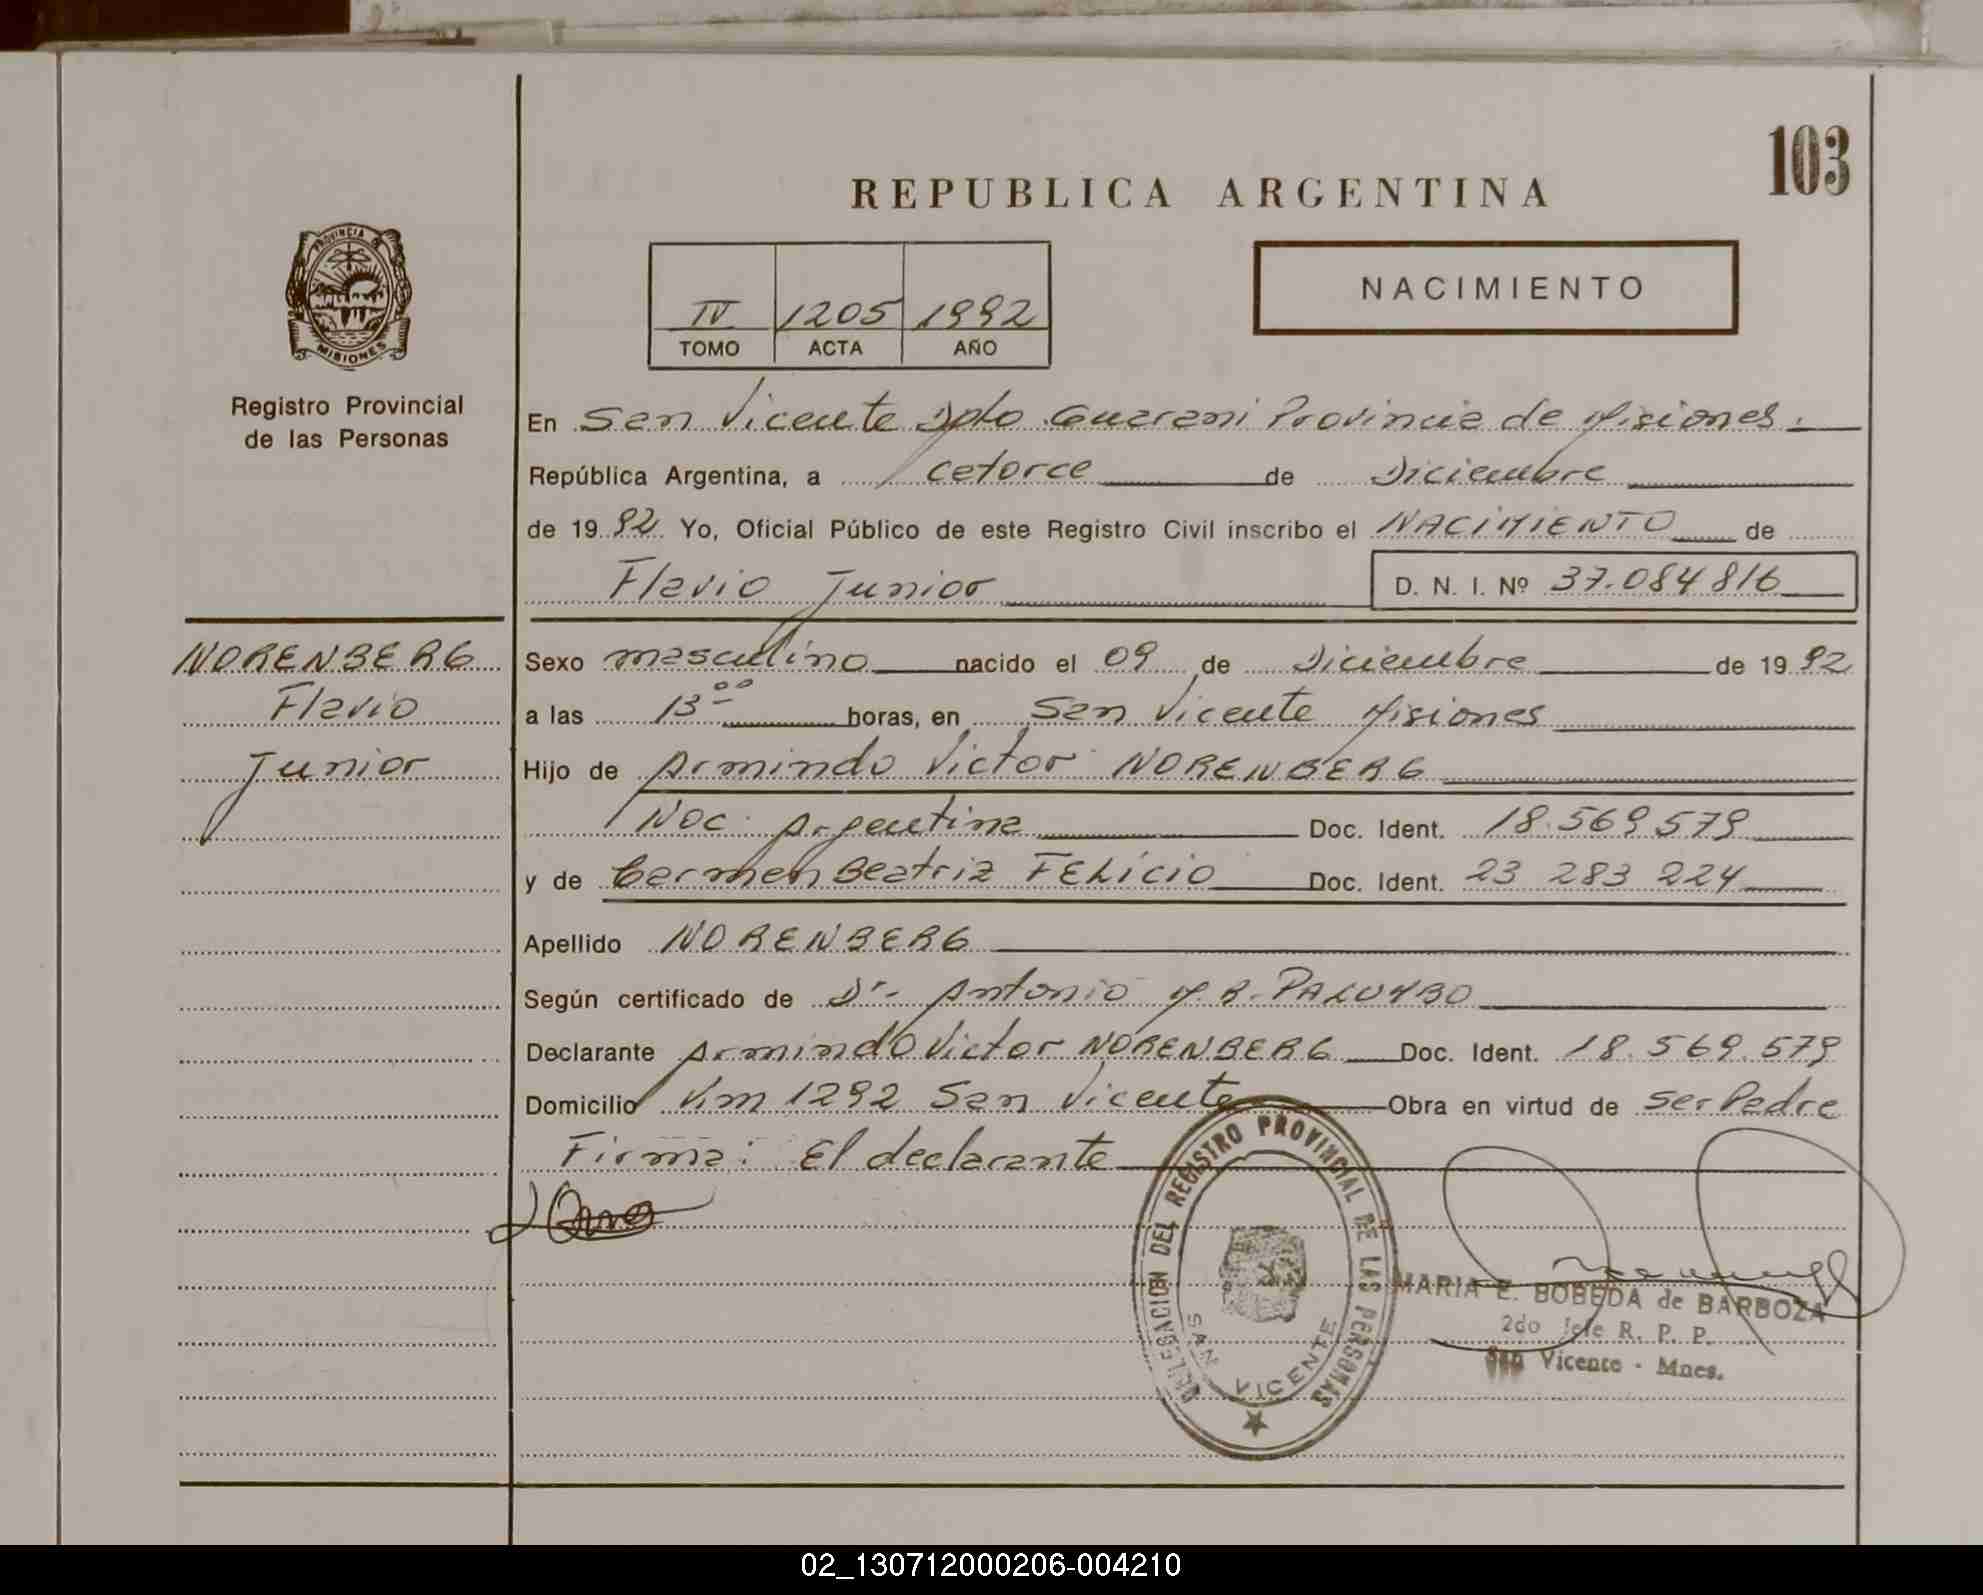 103
REPUBLICA ARGENTINA
PROVINCIA DE
MISIONES
Registro Provincial
de las Personas
IV 1205 1992
TOMO ACTA AÑO
NACIMIENTO
En San Vicente Dpto. Guarani Provincia de Misiones.
República Argentina, a catorce de Diciembre
de 1992 Yo, Oficial Público de este Registro Civil inscribo el NACIMIENTO de
Flavio Junior D. N. I. Nº 37.084816
NORENBERG
Flavio
Junior
Sexo masculino nacido el 09 de Diciembre de 1992
a las 13 00 horas, en San Vicente Misiones
Hijo de Armindo Victor NORENBERG
Nac. Argentina Doc. Ident. 18.569579
y de Carmen Beatriz FELICIO Doc. Ident. 23 283 224
Apellido NORENBERG
Según certificado de Dr. Antonio M.R. PALUMBO
Declarante Armindo Victor NORENBERG Doc. Ident. 18.569.579
Domicilio Km 1292 San Vicente Obra en virtud de ser Padre
Firma: El declarante
DELEGACION DEL REGISTRO PROVINCIAL DE LAS PERSONAS
SAN VICENTE
MARIA E. BOBEDA de BARBOZA
2do Jefe R. P. P.
San Vicente - Mnes.
02_130712000206-004210